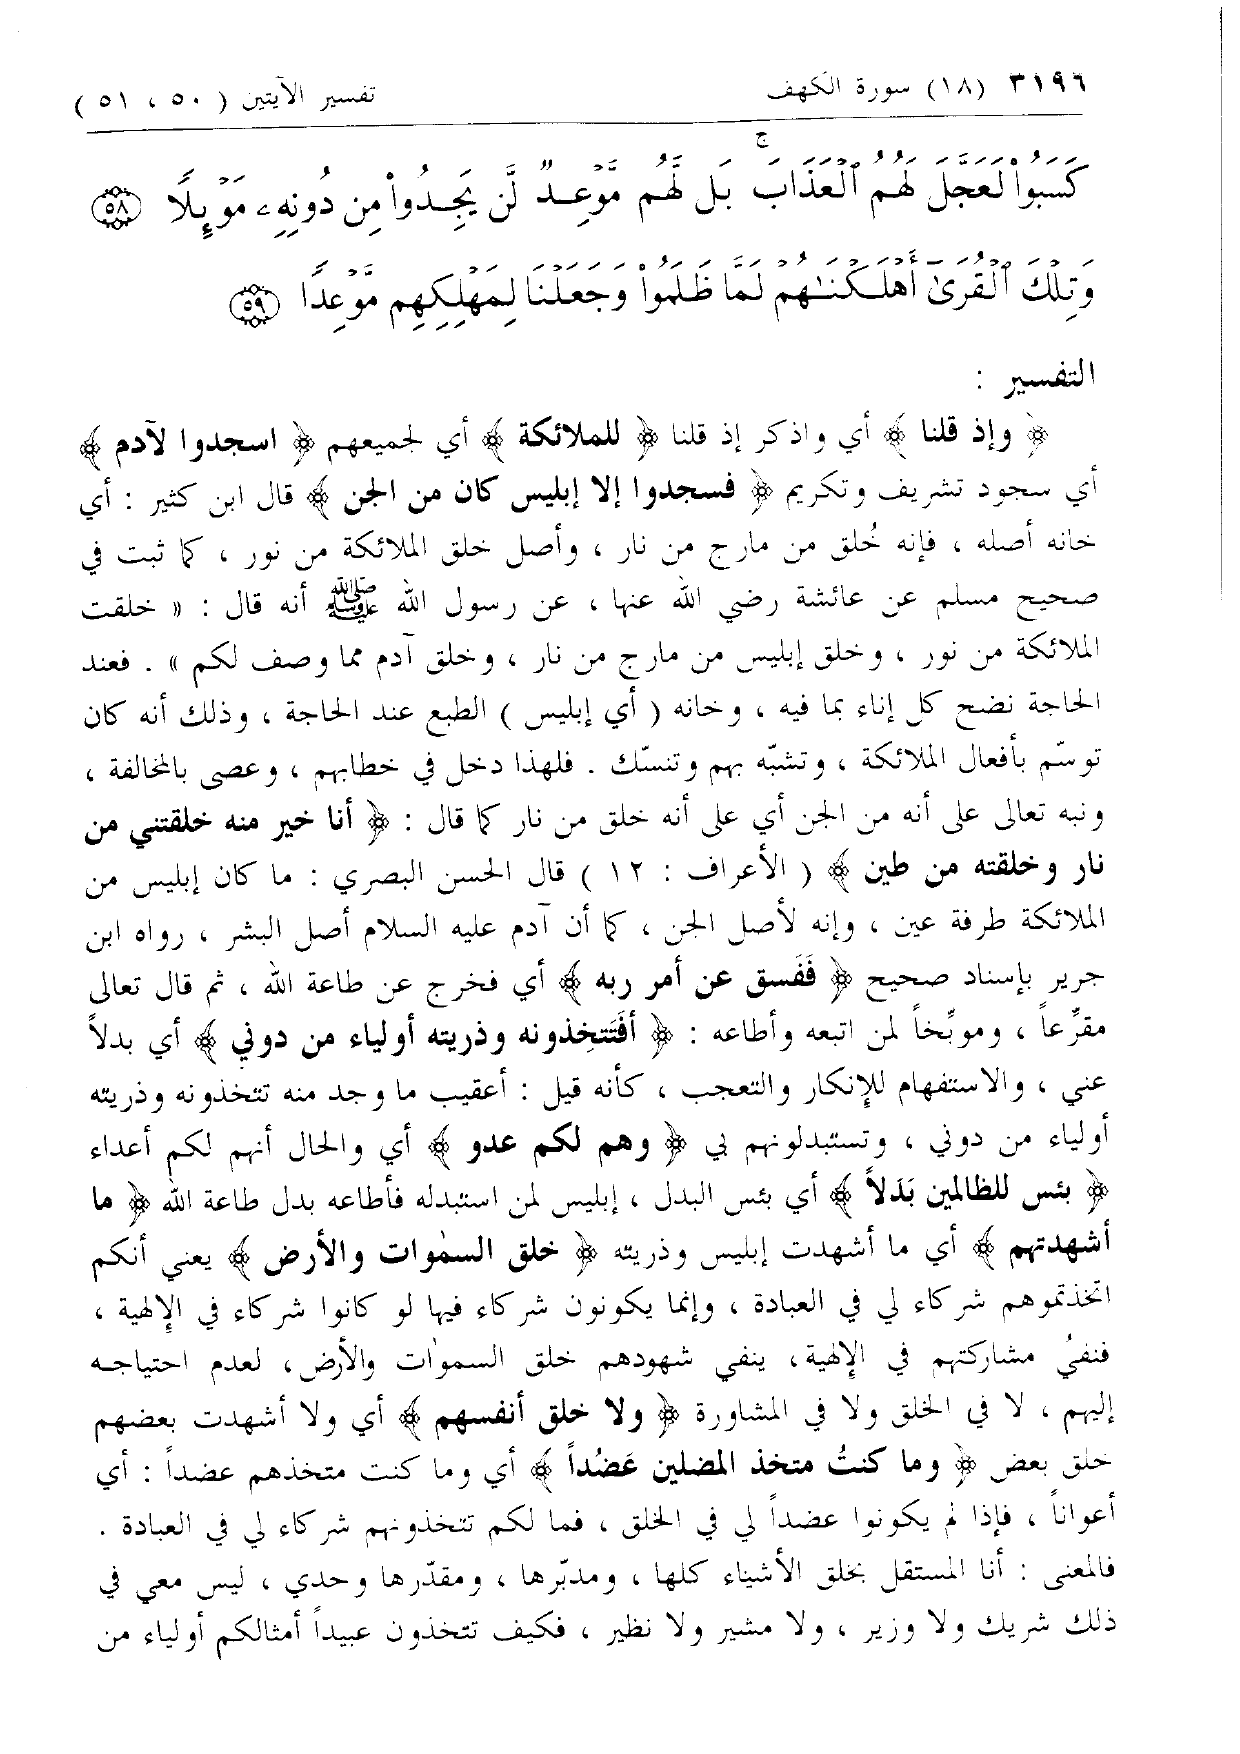 ٣١٩٦ (١٨) سورة الكهف تفسير الآيتين ( ٥٠ ، ٥١ )
كَسَبُوا۟ لَعَجَّلَ لَهُمُ ٱلْعَذَابَ ۚ بَل لَّهُم مَّوْعِدٌ لَّن يَجِدُوا۟ مِن دُونِهِۦ مَوْئِلًا ﴿٥٨﴾
وَتِلْكَ ٱلْقُرَىٰٓ أَهْلَكْنَٰهُمْ لَمَّا ظَلَمُوا۟ وَجَعَلْنَا لِمَهْلِكِهِم مَّوْعِدًا ﴿٥٩﴾
التفسير :
﴿ وإذ قلنا ﴾ أي واذكر إذ قلنا ﴿ للملائكة ﴾ أي لجميعهم ﴿ اسجدوا لآدم ﴾
أي سجود تشريف وتكريم ﴿ فسجدوا إلا إبليس كان من الجن ﴾ قال ابن كثير : أي
خانه أصله ، فإنه خُلق من مارج من نار ، وأصل خلق الملائكة من نور ، كما ثبت في
صحيح مسلم عن عائشة رضي الله عنها ، عن رسول الله ﷺ أنه قال : « خلقت
الملائكة من نور ، وخلق إبليس من مارج من نار ، وخلق آدم مما وصف لكم » . فعند
الحاجة نضح كل إناء بما فيه ، وخانه ( أي إبليس ) الطبع عند الحاجة ، وذلك أنه كان
توسّم بأفعال الملائكة ، وتشبّه بهم وتنسّك . فلهذا دخل في خطابهم ، وعصى بالمخالفة ،
ونبه تعالى على أنه من الجن أي على أنه خلق من نار كما قال : ﴿ أنا خير منه خلقتني من
نار وخلقته من طين ﴾ ( الأعراف : ١٢ ) قال الحسن البصري : ما كان إبليس من
الملائكة طرفة عين ، وإنه لأصل الجن ، كما أن آدم عليه السلام أصل البشر ، رواه ابن
جرير بإسناد صحيح ﴿ فَفَسق عن أمر ربه ﴾ أي فخرج عن طاعة الله ، ثم قال تعالى
مقرِّعاً ، وموبِّخاً لمن اتبعه وأطاعه : ﴿ أفَتَتخِذونه وذريته أولياء من دوني ﴾ أي بدلاً
عني ، والاستفهام للإنكار والتعجب ، كأنه قيل : أعقيب ما وجد منه تتخذونه وذريته
أولياء من دوني ، وتستبدلونهم بي ﴿ وهم لكم عدو ﴾ أي والحال أنهم لكم أعداء
﴿ بئس للظالمين بَدَلاً ﴾ أي بئس البدل ، إبليس لمن استبدله فأطاعه بدل طاعة الله ﴿ ما
أشهدتهم ﴾ أي ما أشهدت إبليس وذريته ﴿ خلق السمٰوات والأرض ﴾ يعني أنكم
اتخذتموهم شركاء لي في العبادة ، وإنما يكونون شركاء فيها لو كانوا شركاء في الإلهية ،
فنفيُ مشاركتهم في الإلهية، ينفي شهودهم خلق السمٰوات والأرض، لعدم احتياجه
إليهم ، لا في الخلق ولا في المشاورة ﴿ ولا خلق أنفسهم ﴾ أي ولا أشهدت بعضهم
خلق بعض ﴿ وما كنتُ متخذ المضلين عَضُداً ﴾ أي وما كنت متخذهم عضداً : أي
أعواناً ، فإذا لم يكونوا عضداً لي في الخلق ، فما لكم تتخذونهم شركاء لي في العبادة .
فالمعنى : أنا المستقل بخلق الأشياء كلها ، ومدبّرها ، ومقدّرها وحدي ، ليس معي في
ذلك شريك ولا وزير ، ولا مشير ولا نظير ، فكيف تتخذون عبيداً أمثالكم أولياء من